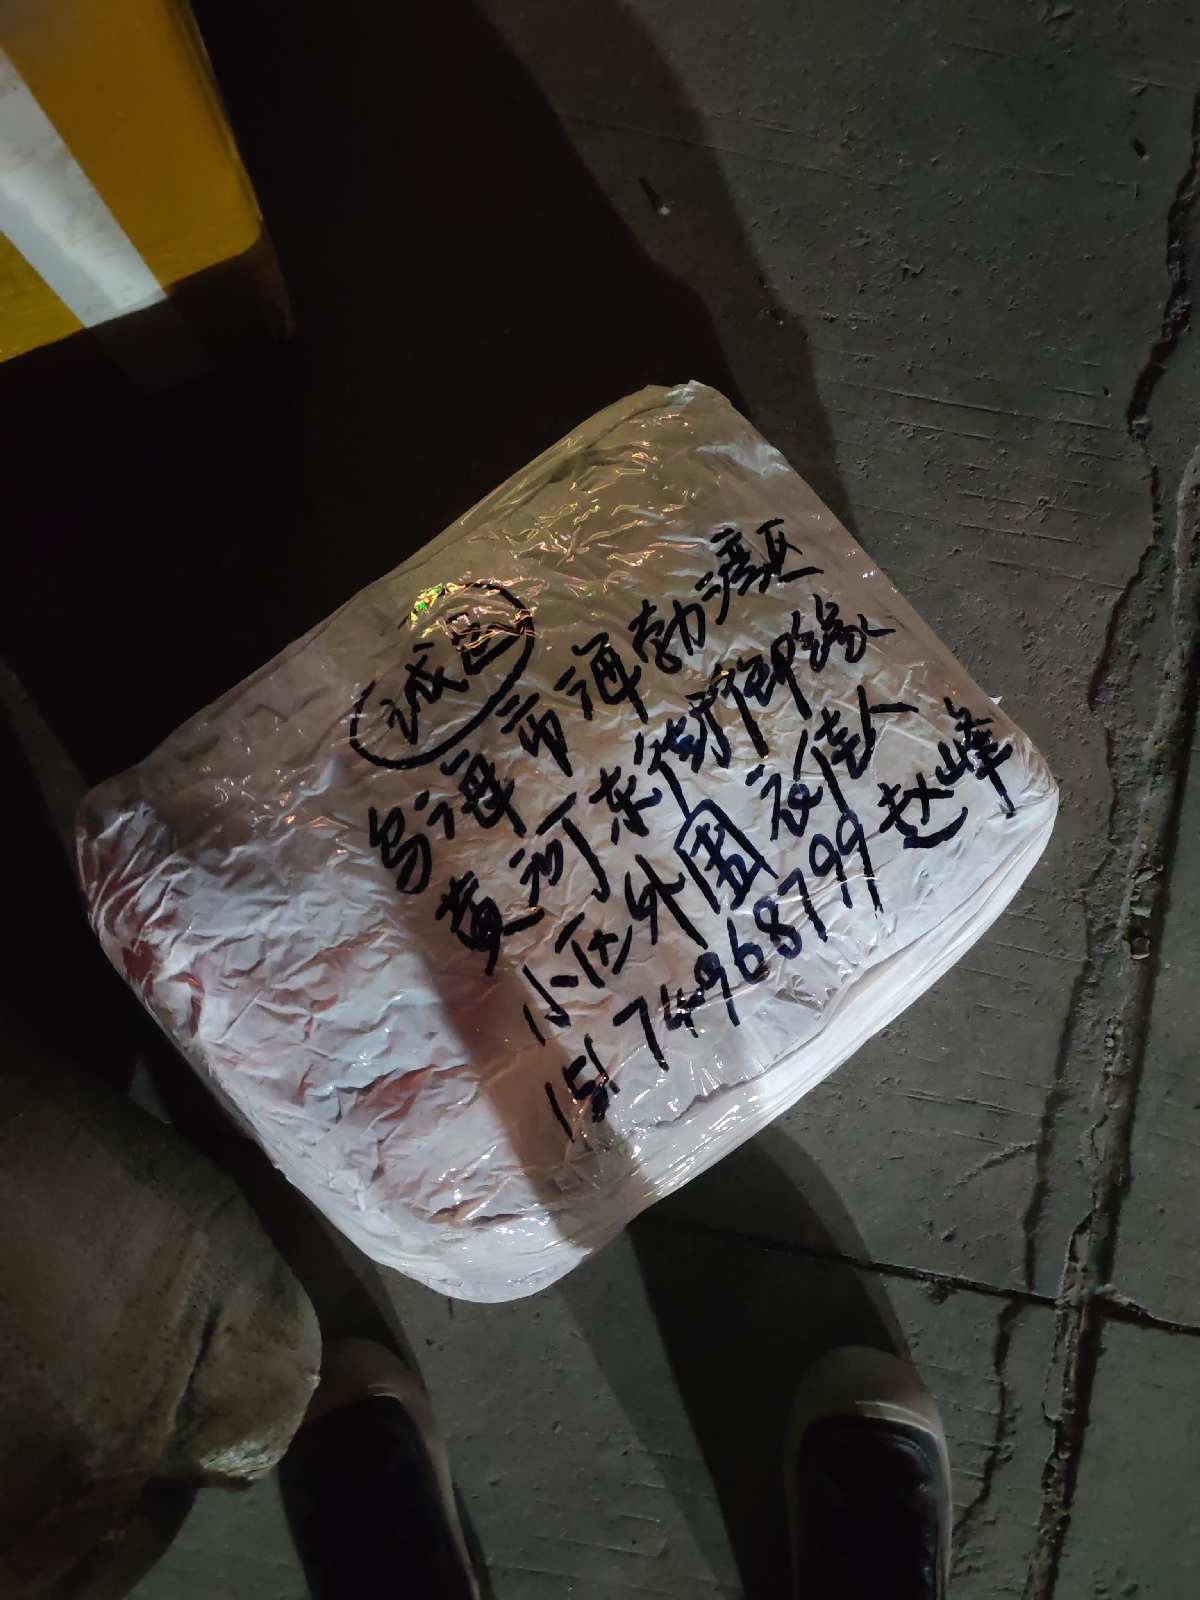 诚昌
乌海市海勃湾区
黄河东街御缘
小区外围 衣佳人
15174968799 赵峰